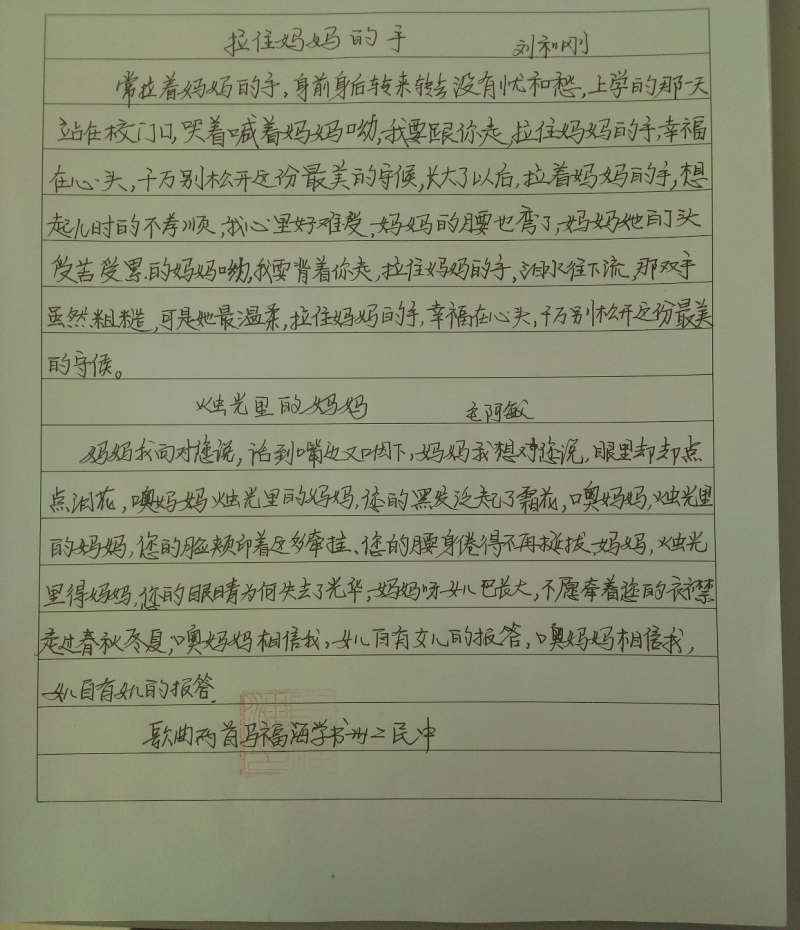 拉住妈妈的手 刘和刚
常拉着妈妈的手,身前身后转来转去没有忧和愁,上学的那一天
站在校门口,哭着喊着妈妈呦,我要跟你走,拉住妈妈的手,幸福
在心头,千万别松开这份最美的守候,长大了以后,拉着妈妈的手,想
起儿时的不孝顺,我心里好难受,妈妈的腰也弯了,妈妈她白了头
受苦受累的妈妈呦,我要背着你走,拉住妈妈的手,泪水往下流,那双手
虽然粗糙,可是她最温柔,拉住妈妈的手,幸福在心头,千万别松开这份最美
的守候。
烛光里的妈妈 毛阿敏
妈妈我向对您说,话到嘴边又咽下,妈妈我想对您说,眼里却却点
点泪花,噢妈妈烛光里的妈妈,您的黑发泛起了霜花,噢妈妈,烛光里
的妈妈,您的脸颊印着这多牵挂、您的腰身倦得不再挺拔、妈妈,烛光
里得妈妈,您的眼睛为何失去了光华,妈妈呀女儿已长大,不愿牵着您的衣襟
走过春秋冬夏,噢妈妈相信我,女儿自有女儿的报答,噢妈妈相信我,
女儿自有女儿的报答.
歌曲两首马福海学书